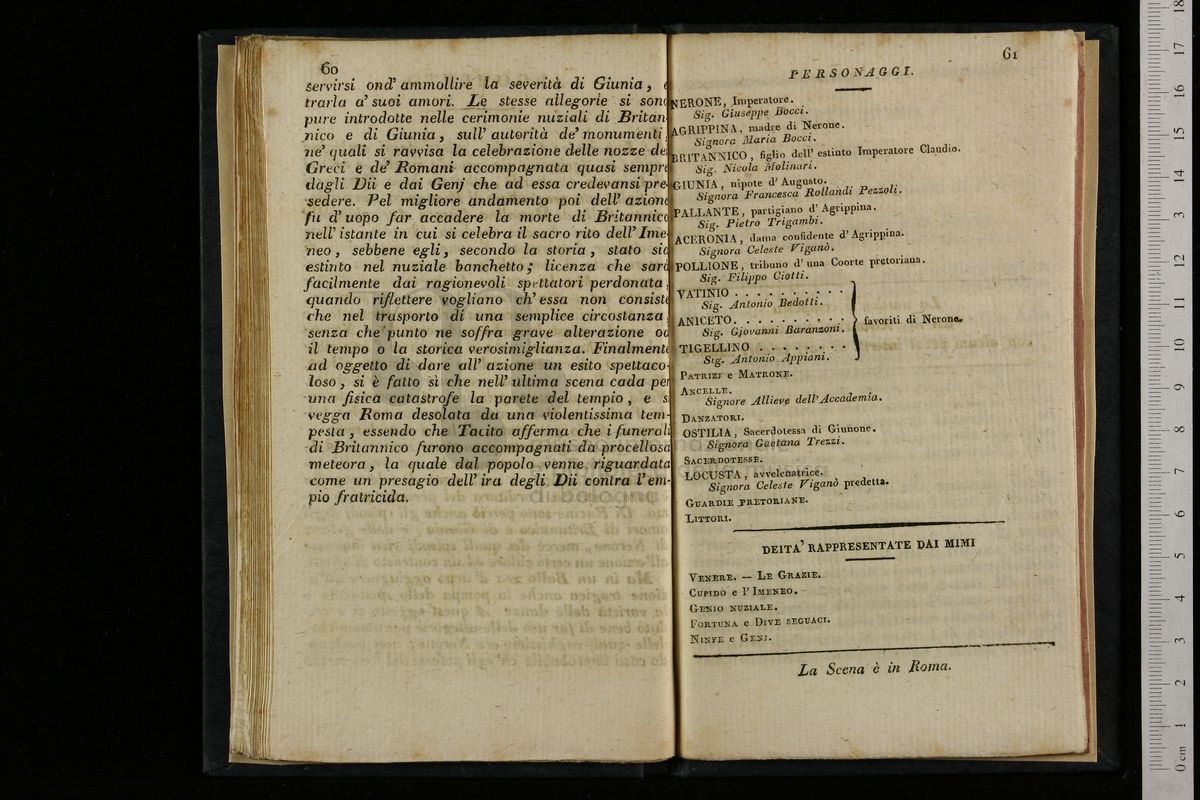 60
servirsi ond' ammollire la severità di Giunia,
trarla a' suoi amori. Le stesse allegorie si sono
pure introdotte nelle cerimonie nuziali di Britan-
nico e di Giunia, sull' autorità de' monumenti,
ne' quali si ravvisa la celebrazione delle nozze dei
Greci e de' Romani accompagnata quasi sempre
dagli Dii e dai Genj che ad essa credevansi pre-
sedere. Pel migliore andamento poi dell' azione
fu d' uopo far accadere la morte di Britannico
nell' istante in cui si celebra il sacro rito dell' Ime-
neo, sebbene egli, secondo la storia, stato sia
estinto nel nuziale banchetto; licenza che sarà
facilmente dai ragionevoli spettatori perdonata,
quando riflettere vogliano ch' essa non consiste
che nel trasporto di una semplice circostanza,
senza che punto ne soffra grave alterazione od
il tempo o la storica verosimiglianza. Finalmente
ad oggetto di dare all' azione un esito spettaco-
loso, si è fatto sì che nell' ultima scena cada per
una fisica catastrofe la parete del tempio, e si
vegga Roma desolata da una violentissima tem-
pesta, essendo che Tacito afferma che i funerali
di Britannico furono accompagnati da procellosa
meteora, la quale dal popolo venne riguardata
come un presagio dell' ira degli Dii contra l' em-
pio fratricida.
61
PERSONAGGI.
NERONE, Imperatore.
Sig. Giuseppe Bocci.
AGRIPPINA, madre di Nerone.
Signora Maria Bocci.
BRITANNICO, figlio dell' estinto Imperatore Claudio.
Sig. Nicola Molinari.
GIUNIA, nipote d' Augusto.
Signora Francesca Rollandi Pezzoli.
PALLANTE, partigiano d' Agrippina.
Sig. Pietro Trigambi.
ACERONIA, dama confidente d' Agrippina.
Signora Celeste Viganò.
POLLIONE, tribuno d' una Coorte pretoriana.
Sig. Filippo Ciotti.
VATINIO . . . . . . . . . .
Sig. Antonio Bedotti.
ANICETO. . . . . . . . . . favoriti di Nerone.
Sig. Giovanni Baranzoni.
TIGELLINO . . . . . . . .
Sig. Antonio Appiani.
PATRIZJ e MATRONE.
ANCELLE.
Signore Allieve dell' Accademia.
DANZATORI.
OSTILIA, Sacerdotessa di Giunone.
Signora Gaetana Trezzi.
SACERDOTESSE.
LOCUSTA, avvelenatrice.
Signora Celeste Viganò predetta.
GUARDIE PRETORIANE.
LITTORI.
DEITA' RAPPRESENTATE DAI MIMI
VENERE. — LE GRAZIE.
CUPIDO e l' IMENEO.
GENIO NUZIALE.
FORTUNA e DIVE SEGUACI.
NINFE e GENJ.
La Scena è in Roma.
0 cm 1 2 3 4 5 6 7 8 9 10 11 12 13 14 15 16 17 18